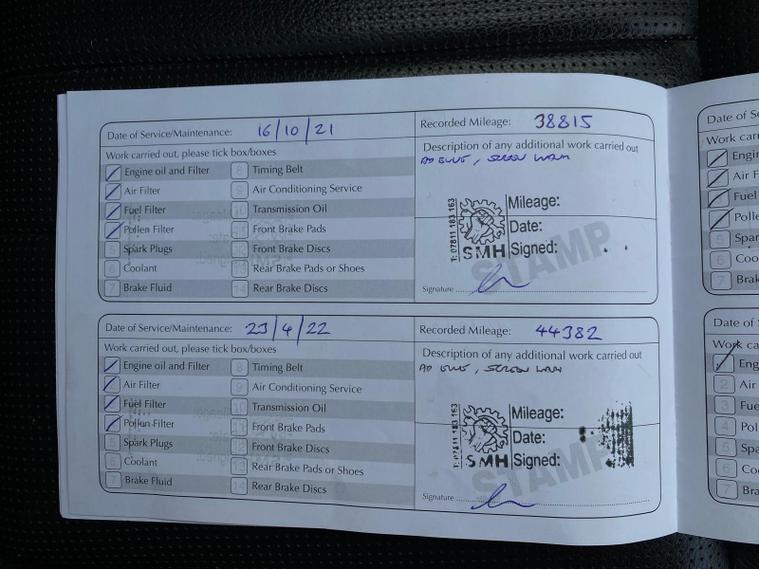 Date of Service/Maintenance: 16/10/21
Recorded Mileage: 38815
Work carried out, please tick box/boxes
Description of any additional work carried out
AD BLUE, SCREEN WASH
Engine oil and Filter
8 Timing Belt
Air Filter
9 Air Conditioning Service
Fuel Filter
10 Transmission Oil
Pollen Filter
11 Front Brake Pads
5 Spark Plugs
12 Front Brake Discs
6 Coolant
13 Rear Brake Pads or Shoes
7 Brake Fluid
14 Rear Brake Discs
T: 07811 183 163
SMH
Mileage:
Date:
Signed:
STAMP
Signature
Date of Service/Maintenance: 23/4/22
Recorded Mileage: 44382
Work carried out, please tick box/boxes
Description of any additional work carried out
AD BLUE, SCREEN WASH
Engine oil and Filter
8 Timing Belt
Air Filter
9 Air Conditioning Service
Fuel Filter
10 Transmission Oil
Pollen Filter
11 Front Brake Pads
5 Spark Plugs
12 Front Brake Discs
6 Coolant
13 Rear Brake Pads or Shoes
7 Brake Fluid
14 Rear Brake Discs
T: 07811 183 163
SMH
Mileage:
Date:
Signed:
STAMP
Signature
Date of Se
Work carri
Engin
Air F
Fuel
Polle
5 Spar
6 Coo
7 Brak
Date of
Work ca
Eng
2 Air
3 Fue
4 Pol
5 Spa
6 Co
7 Bra